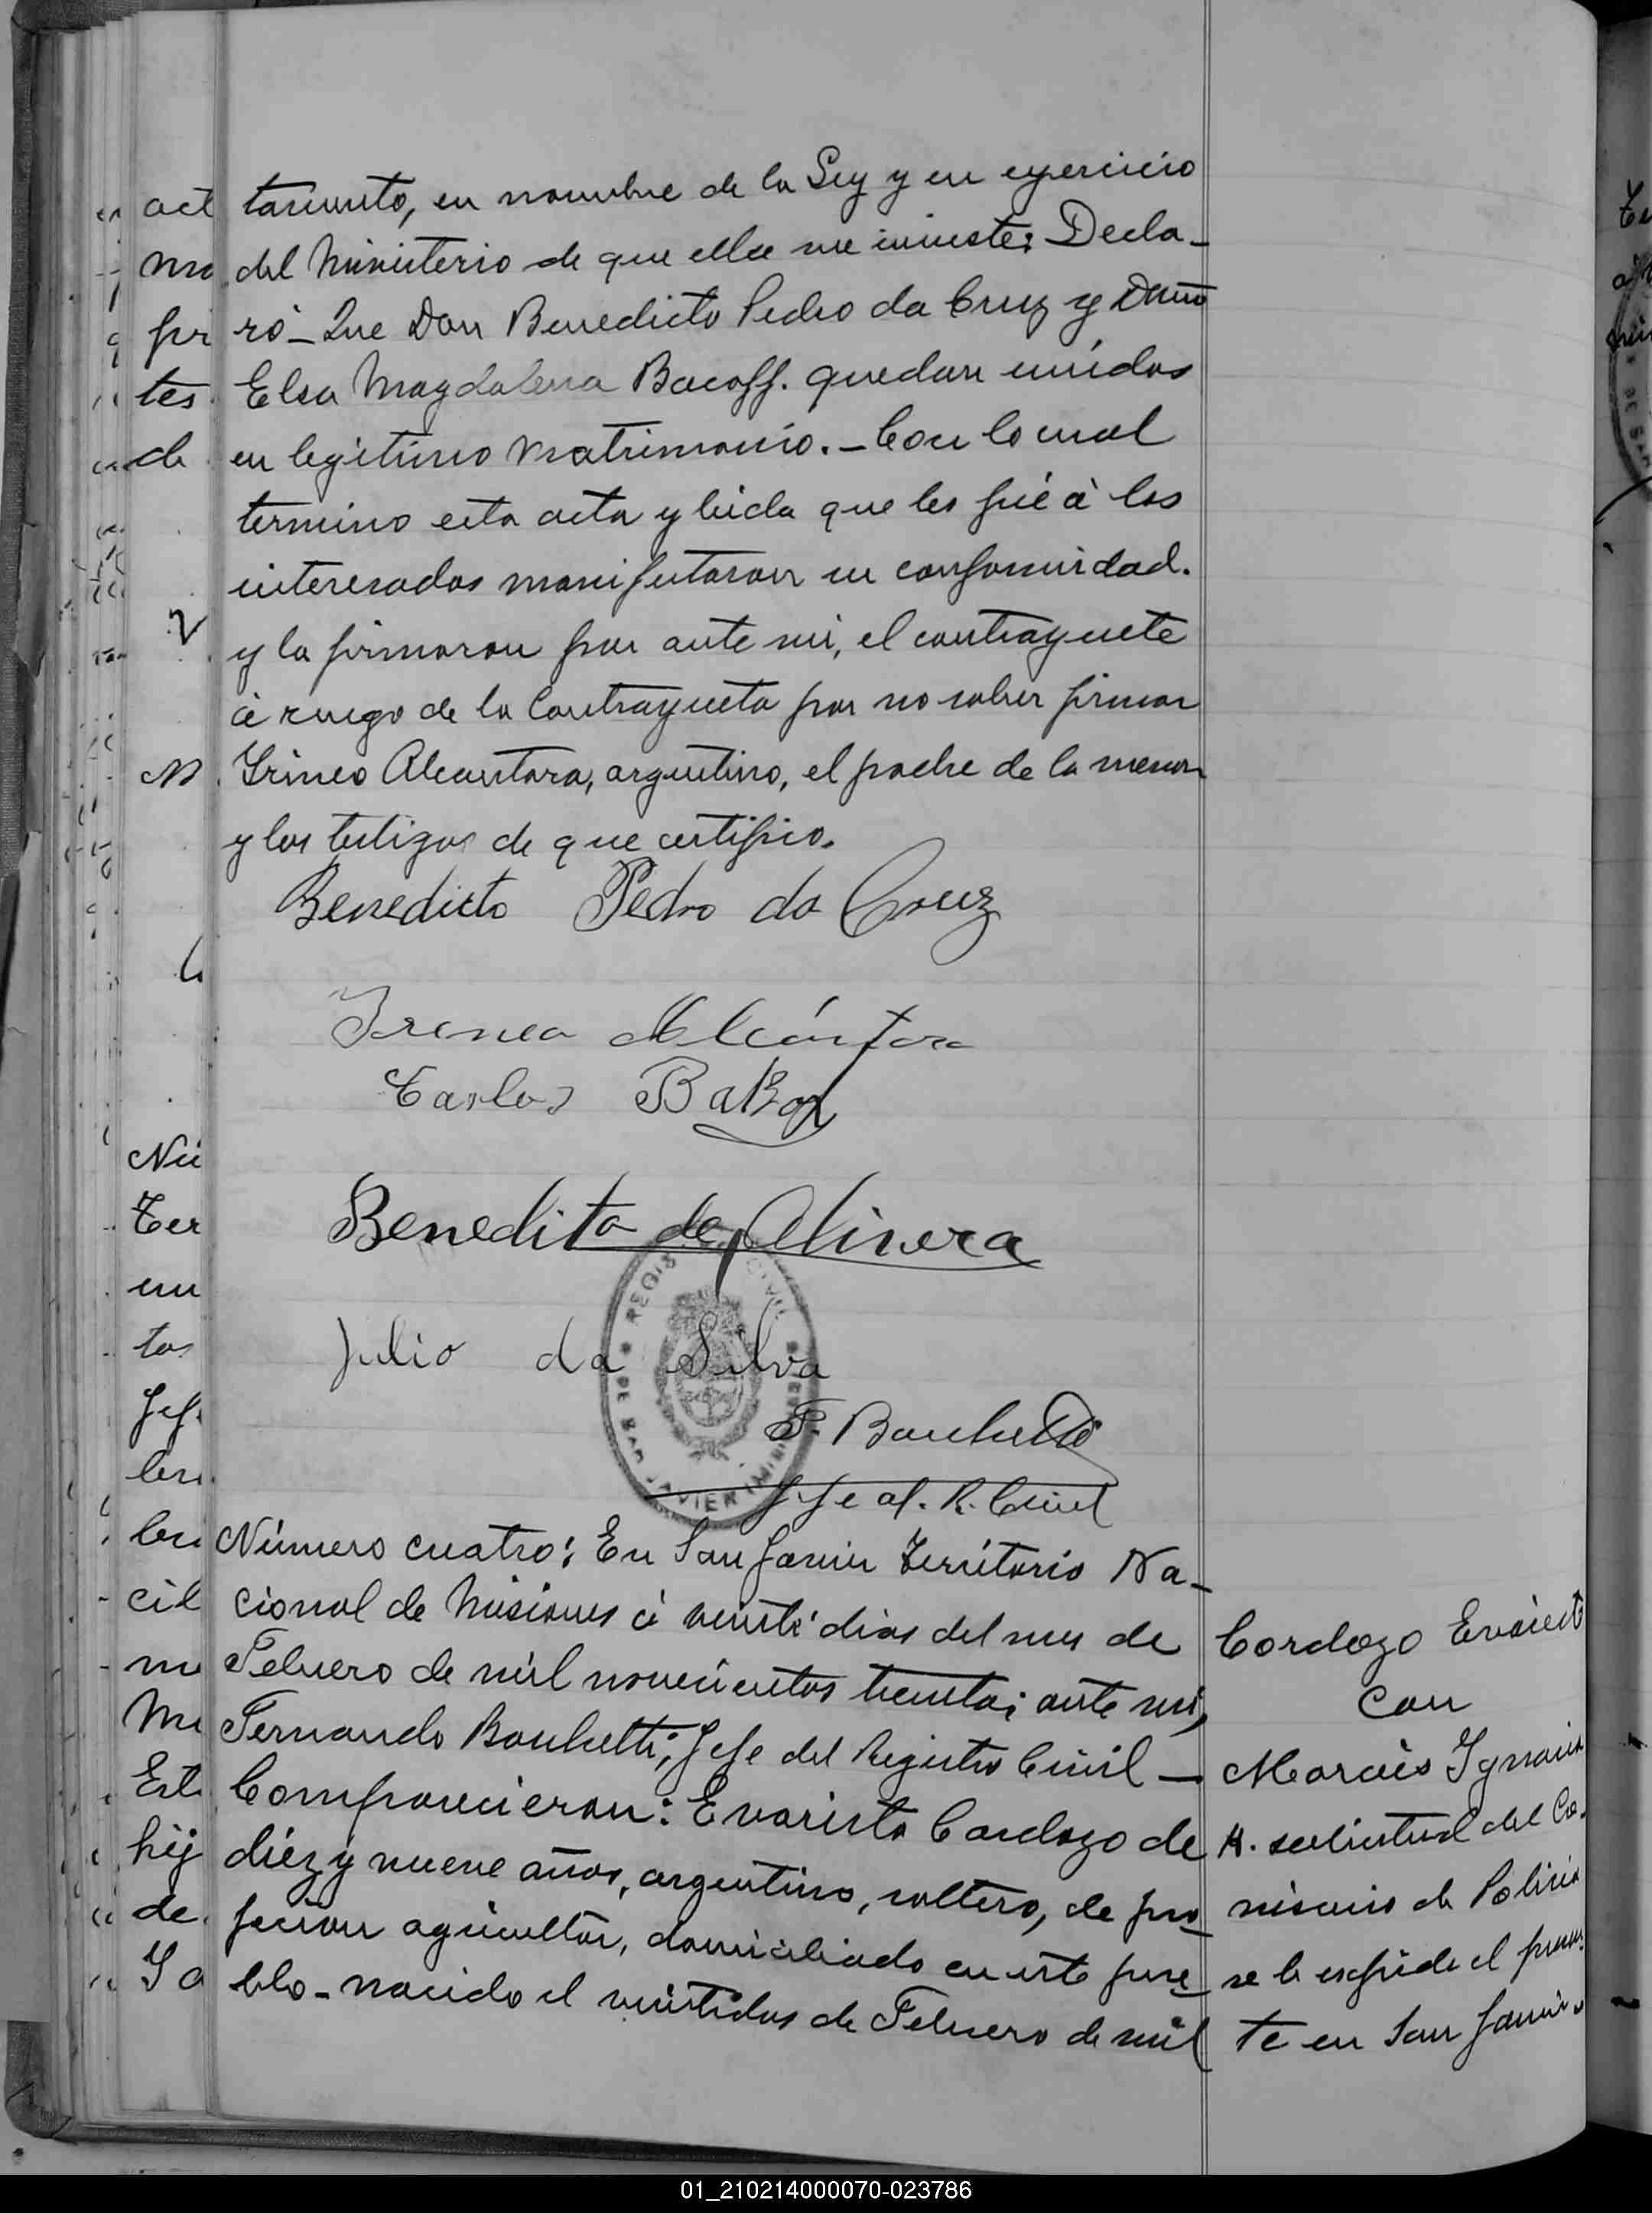 tamento, en nombre de la Ley y en ejercicio
del Ministerio de que ella me inviste: Decla-
ró - Que Don Benedicto Pedro da Cruz y Doña
Elsa Magdalena Bacoff. quedan unidos
en legitimo Matrimonio. - Con lo cual
termino esta acta y leida que les fué à los
interesados manifestaron su conformidad.
y la firmaron por ante mi, el contrayente
à ruego de la Contrayente por no saber firmar
Irineo Alcantara, argentino, el padre de la menor
y los testigos de que certifico.
Benedicto Pedro da Cruz
Ireneo Alcántara
Carlos
Benedito de Oliveira
Julio da Silva
REGISTRO CIVIL
DE SAN JAVIER
F. Bouchetti
Jefe of. R. Civil
Número cuatro: En San Javier Territorio Na-
cional de Misiones à veinte dias del mes de
Febrero de mil novecientos treinta; ante mi,
Fernando Bouchetti, Jefe del Registro Civil -
Comparecieron: Evaristo Cardozo de
diez y nueve años, argentino, soltero, de pro
fesion agricultor, domiciliado en este pue
blo - nacido el veintidos de Febrero de mil
Cordozo Evarist
con
Morais Ygnacia
A. solicitud del Co-
misario de Policia
se le expide el presen
te en San Javier
act
mo
tes
de
Nú
Ter
cil
hij
de
01_210214000070-023786